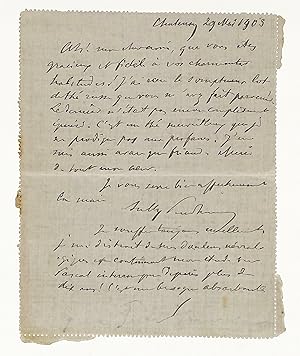 Chatenay 29 Mai 1903
Ah! mon cher ami, que vous êtes
gracieux et fidèle à vos charmantes
habitudes! J'ai reçu le somptueux lot
de thé russe que vous m'avez fait parvenir.
Le dernier n'était pas encore complètement
épuisé. C'est un thé que je
ne prodigue pas aux profanes. J'en
suis aussi avare que friand. Merci
de tout mon cœur.
Je vous serre bien affectueusement
la main
Sully Prudhomme
Je souffre toujours
je me distrait de mes douleurs
en continuant mon étude sur
Pascal interrompue depuis plus de
dix ans! C'est une besogne absorbante
S